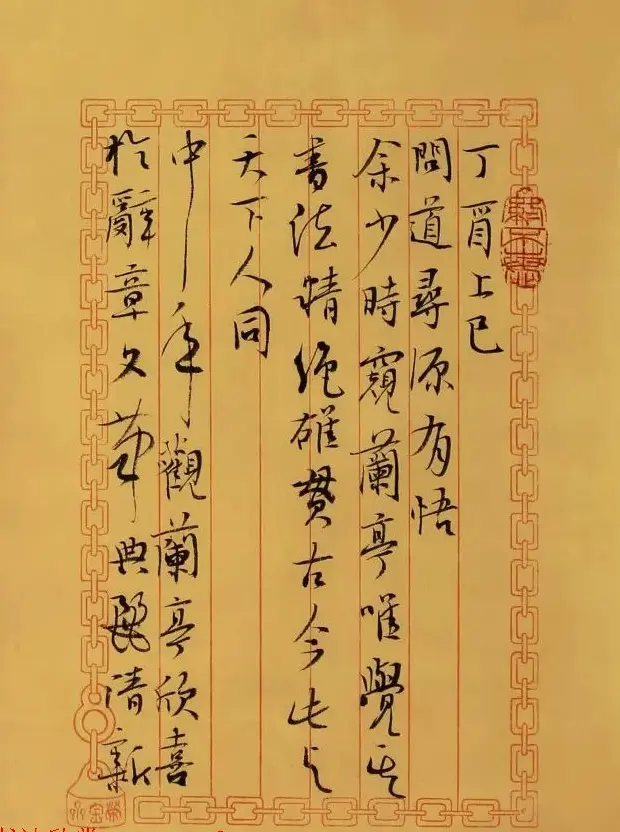 丁酉上巳
問道尋源有悟
余少時窺蘭亭唯覺其
書法精絕雄貫古今此与
天下人同
中年觀蘭亭欣喜
於辭章文華典麗清新